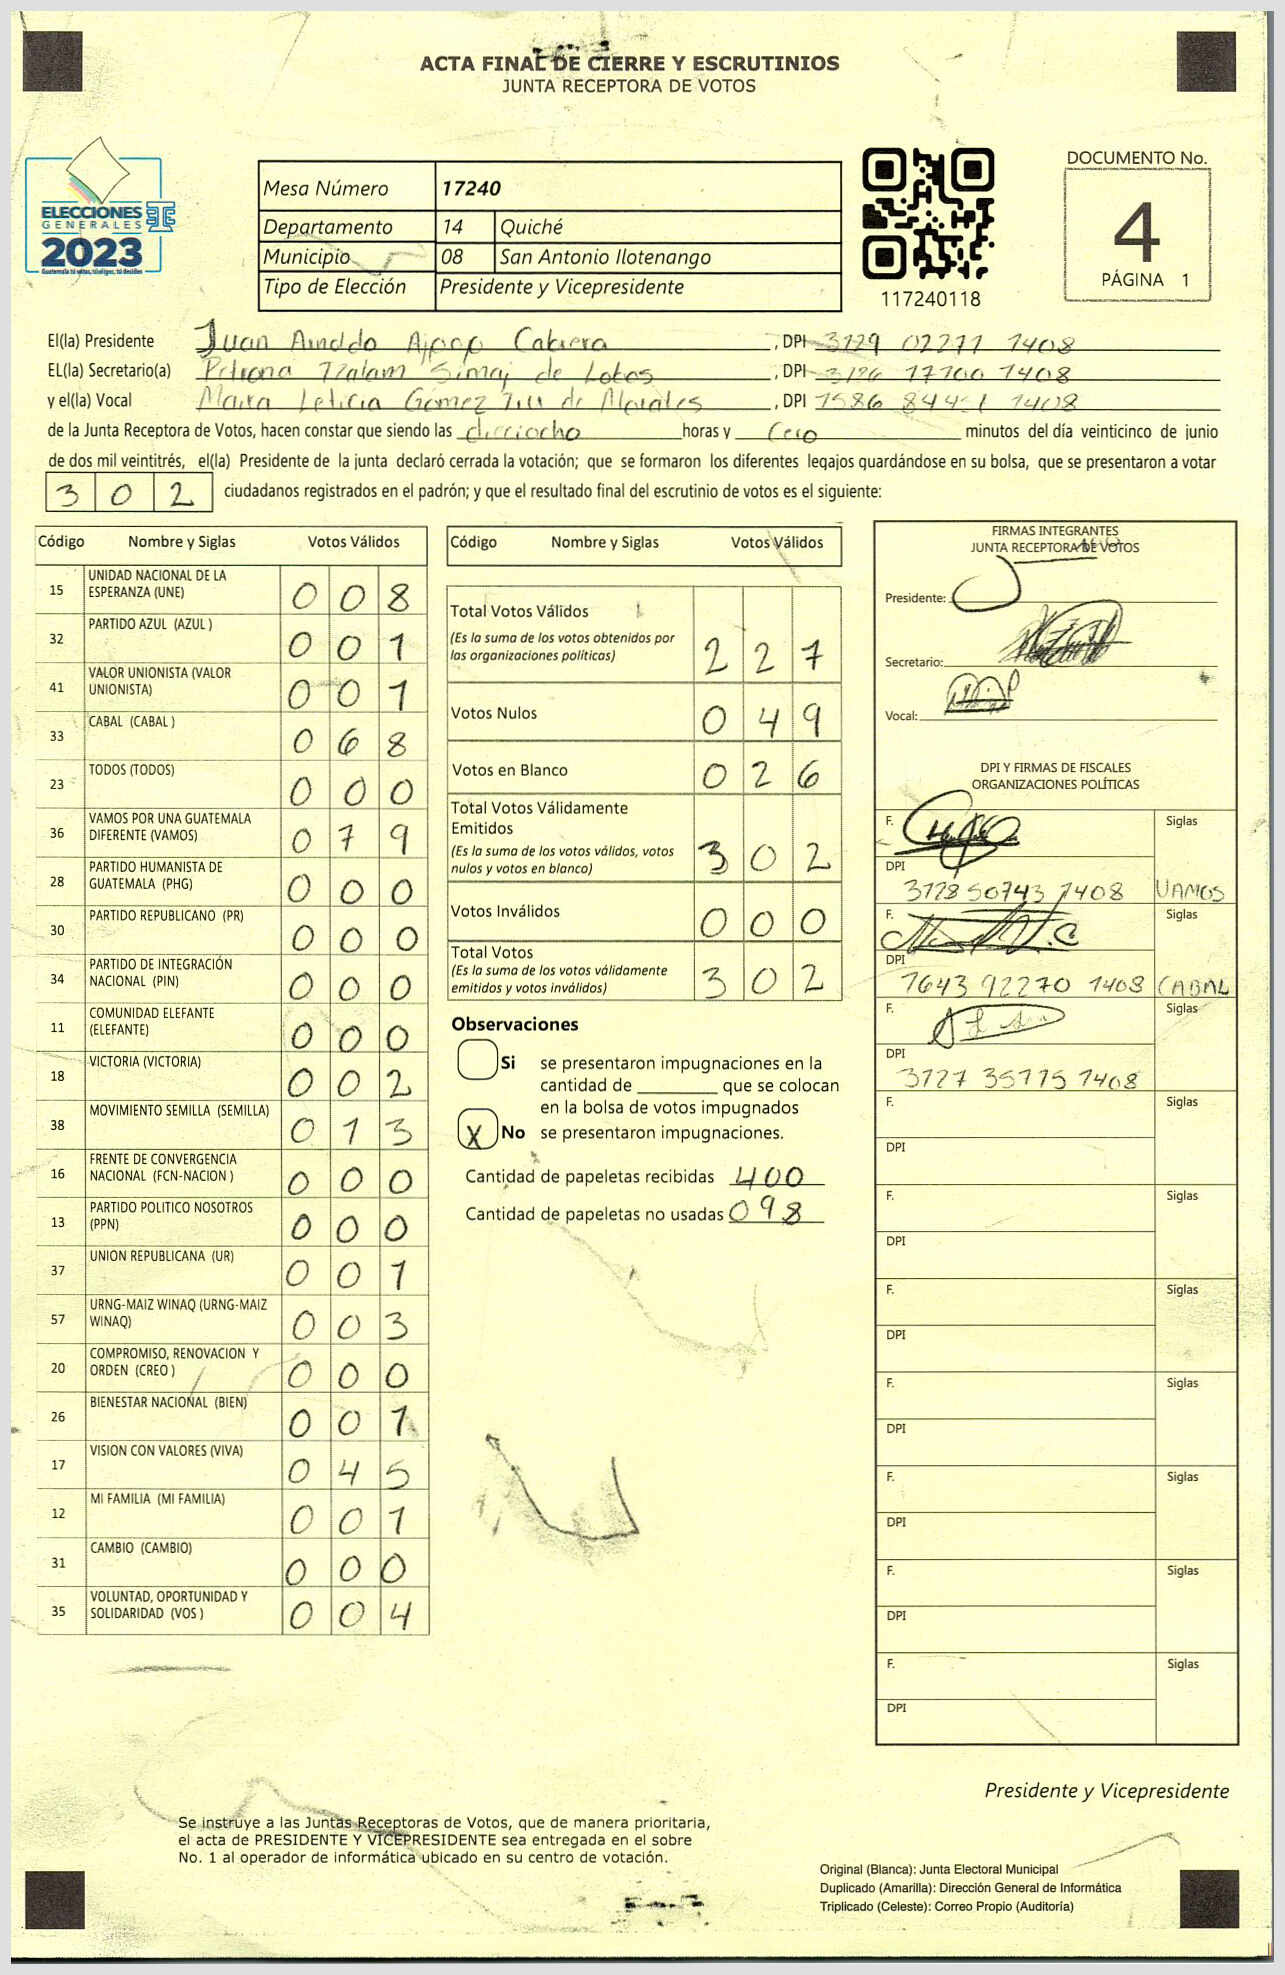 ACTA FINAL DE CIERRE Y ESCRUTINIOS
JUNTA RECEPTORA DE VOTOS
ELECCIONES
GENERALES
2023
Guatemala tú votas, tú eliges, tú decides
Mesa Número 17240
Departamento 14 Quiché
Municipio 08 San Antonio Ilotenango
Tipo de Elección Presidente y Vicepresidente
117240118
DOCUMENTO No.
4
PÁGINA 1
El(la) Presidente Juan Cabrera , DPI 3129 02277 1408
EL(la) Secretario(a) Petrona Tzalam Simaj de Lotos , DPI 3126 17700 1408
y el(la) Vocal Maira Leticia Gómez de Morales , DPI 1586 1408
de la Junta Receptora de Votos, hacen constar que siendo las dieciocho horas y cero minutos del día veinticinco de junio
de dos mil veintitrés, el(la) Presidente de la junta declaró cerrada la votación; que se formaron los diferentes legajos guardándose en su bolsa, que se presentaron a votar
302 ciudadanos registrados en el padrón; y que el resultado final del escrutinio de votos es el siguiente:
Código Nombre y Siglas Votos Válidos
15 UNIDAD NACIONAL DE LA ESPERANZA (UNE) 0 0 8
32 PARTIDO AZUL (AZUL ) 0 0 1
41 VALOR UNIONISTA (VALOR UNIONISTA) 0 0 1
33 CABAL (CABAL ) 0 6 8
23 TODOS (TODOS) 0 0 0
36 VAMOS POR UNA GUATEMALA DIFERENTE (VAMOS) 0 7 9
28 PARTIDO HUMANISTA DE GUATEMALA (PHG) 0 0 0
30 PARTIDO REPUBLICANO (PR) 0 0 0
34 PARTIDO DE INTEGRACIÓN NACIONAL (PIN) 0 0 0
11 COMUNIDAD ELEFANTE (ELEFANTE) 0 0 0
18 VICTORIA (VICTORIA) 0 0 2
38 MOVIMIENTO SEMILLA (SEMILLA) 0 1 3
16 FRENTE DE CONVERGENCIA NACIONAL (FCN-NACION ) 0 0 0
13 PARTIDO POLITICO NOSOTROS (PPN) 0 0 0
37 UNION REPUBLICANA (UR) 0 0 1
57 URNG-MAIZ WINAQ (URNG-MAIZ WINAQ) 0 0 3
20 COMPROMISO, RENOVACION Y ORDEN (CREO ) 0 0 0
26 BIENESTAR NACIONAL (BIEN) 0 0 1
17 VISION CON VALORES (VIVA) 0 4 5
12 MI FAMILIA (MI FAMILIA) 0 0 1
31 CAMBIO (CAMBIO) 0 0 0
35 VOLUNTAD, OPORTUNIDAD Y SOLIDARIDAD (VOS ) 0 0 4
Código Nombre y Siglas Votos Válidos
Total Votos Válidos
(Es la suma de los votos obtenidos por
las organizaciones políticas) 2 2 7
Votos Nulos 0 4 9
Votos en Blanco 0 2 6
Total Votos Válidamente
Emitidos
(Es la suma de los votos válidos, votos
nulos y votos en blanco) 3 0 2
Votos Inválidos 0 0 0
Total Votos
(Es la suma de los votos válidamente
emitidos y votos inválidos) 3 0 2
Observaciones
Si se presentaron impugnaciones en la
cantidad de ________ que se colocan
en la bolsa de votos impugnados
X No se presentaron impugnaciones.
Cantidad de papeletas recibidas 400
Cantidad de papeletas no usadas 098
FIRMAS INTEGRANTES
JUNTA RECEPTORA DE VOTOS
Presidente:
Secretario:
Vocal:
DPI Y FIRMAS DE FISCALES
ORGANIZACIONES POLÍTICAS
F. Siglas
DPI
3128 50743 1408 VAMOS
F. Siglas
DPI
1643 92270 1408 CABAL
F. Siglas
DPI
3727 35775 1408
F. Siglas
DPI
F. Siglas
DPI
F. Siglas
DPI
F. Siglas
DPI
F. Siglas
DPI
F. Siglas
DPI
F. Siglas
DPI
Presidente y Vicepresidente
Se instruye a las Juntas Receptoras de Votos, que de manera prioritaria,
el acta de PRESIDENTE Y VICEPRESIDENTE sea entregada en el sobre
No. 1 al operador de informática ubicado en su centro de votación.
Original (Blanca): Junta Electoral Municipal
Duplicado (Amarilla): Dirección General de Informática
Triplicado (Celeste): Correo Propio (Auditoría)